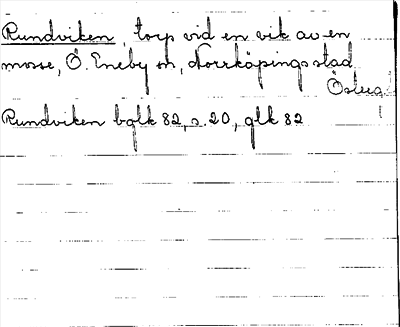 Rundviken, torp vid en vik av en
mosse, Ö. Eneby sn, Norrköpings stad
Östug.
Rundviken bglk 82, s. 20, glk 82